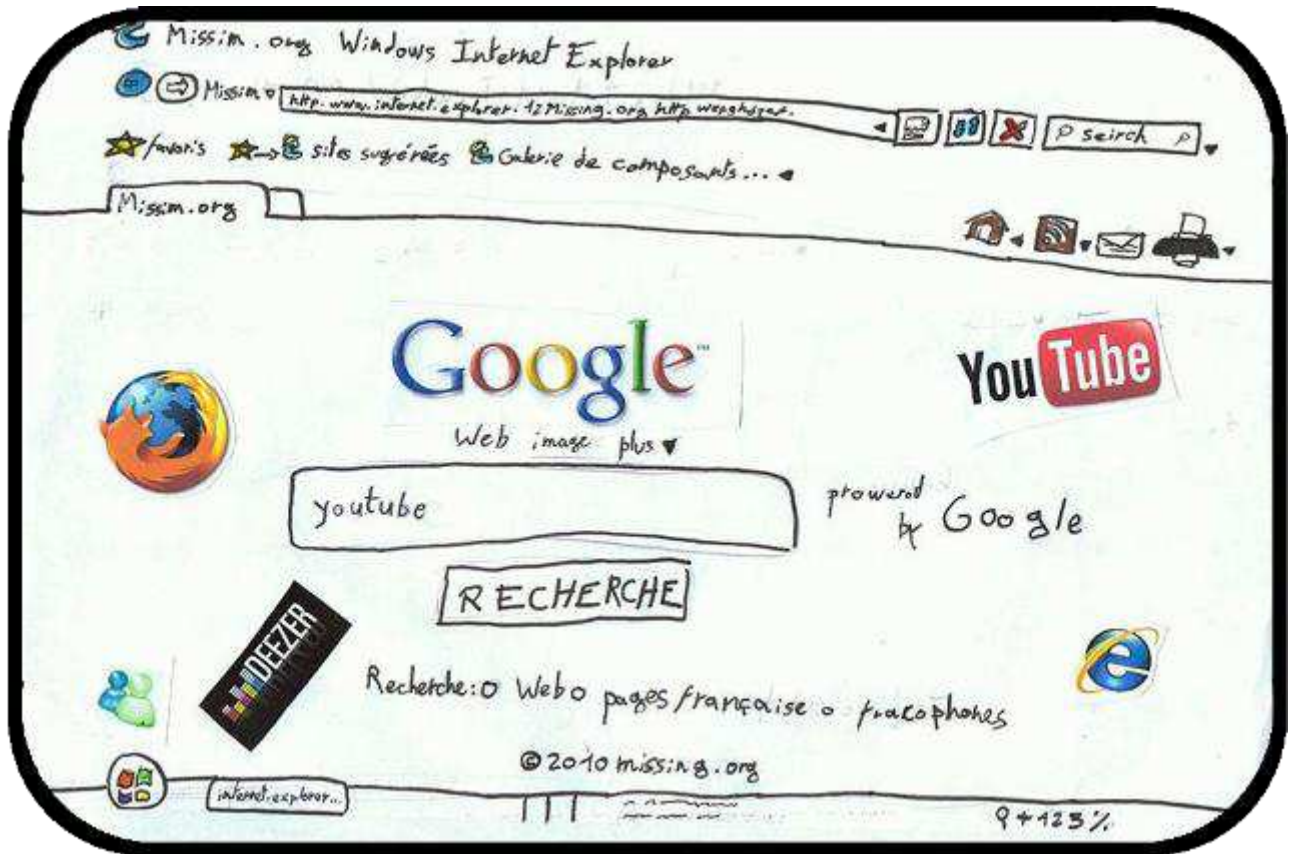 Missim.org Windows Internet Explorer
Missim
http.www.internet.explorer.12Missing.org http
seirch
favoris sites sugérées Galerie de composants...
Missim.org
Google™
YouTube
Web image plus
youtube
prowered by Google
RECHERCHE
DEEZER
Recherche: Web pages française fracophones
©2010 missing.org
internet.explorer..
123%